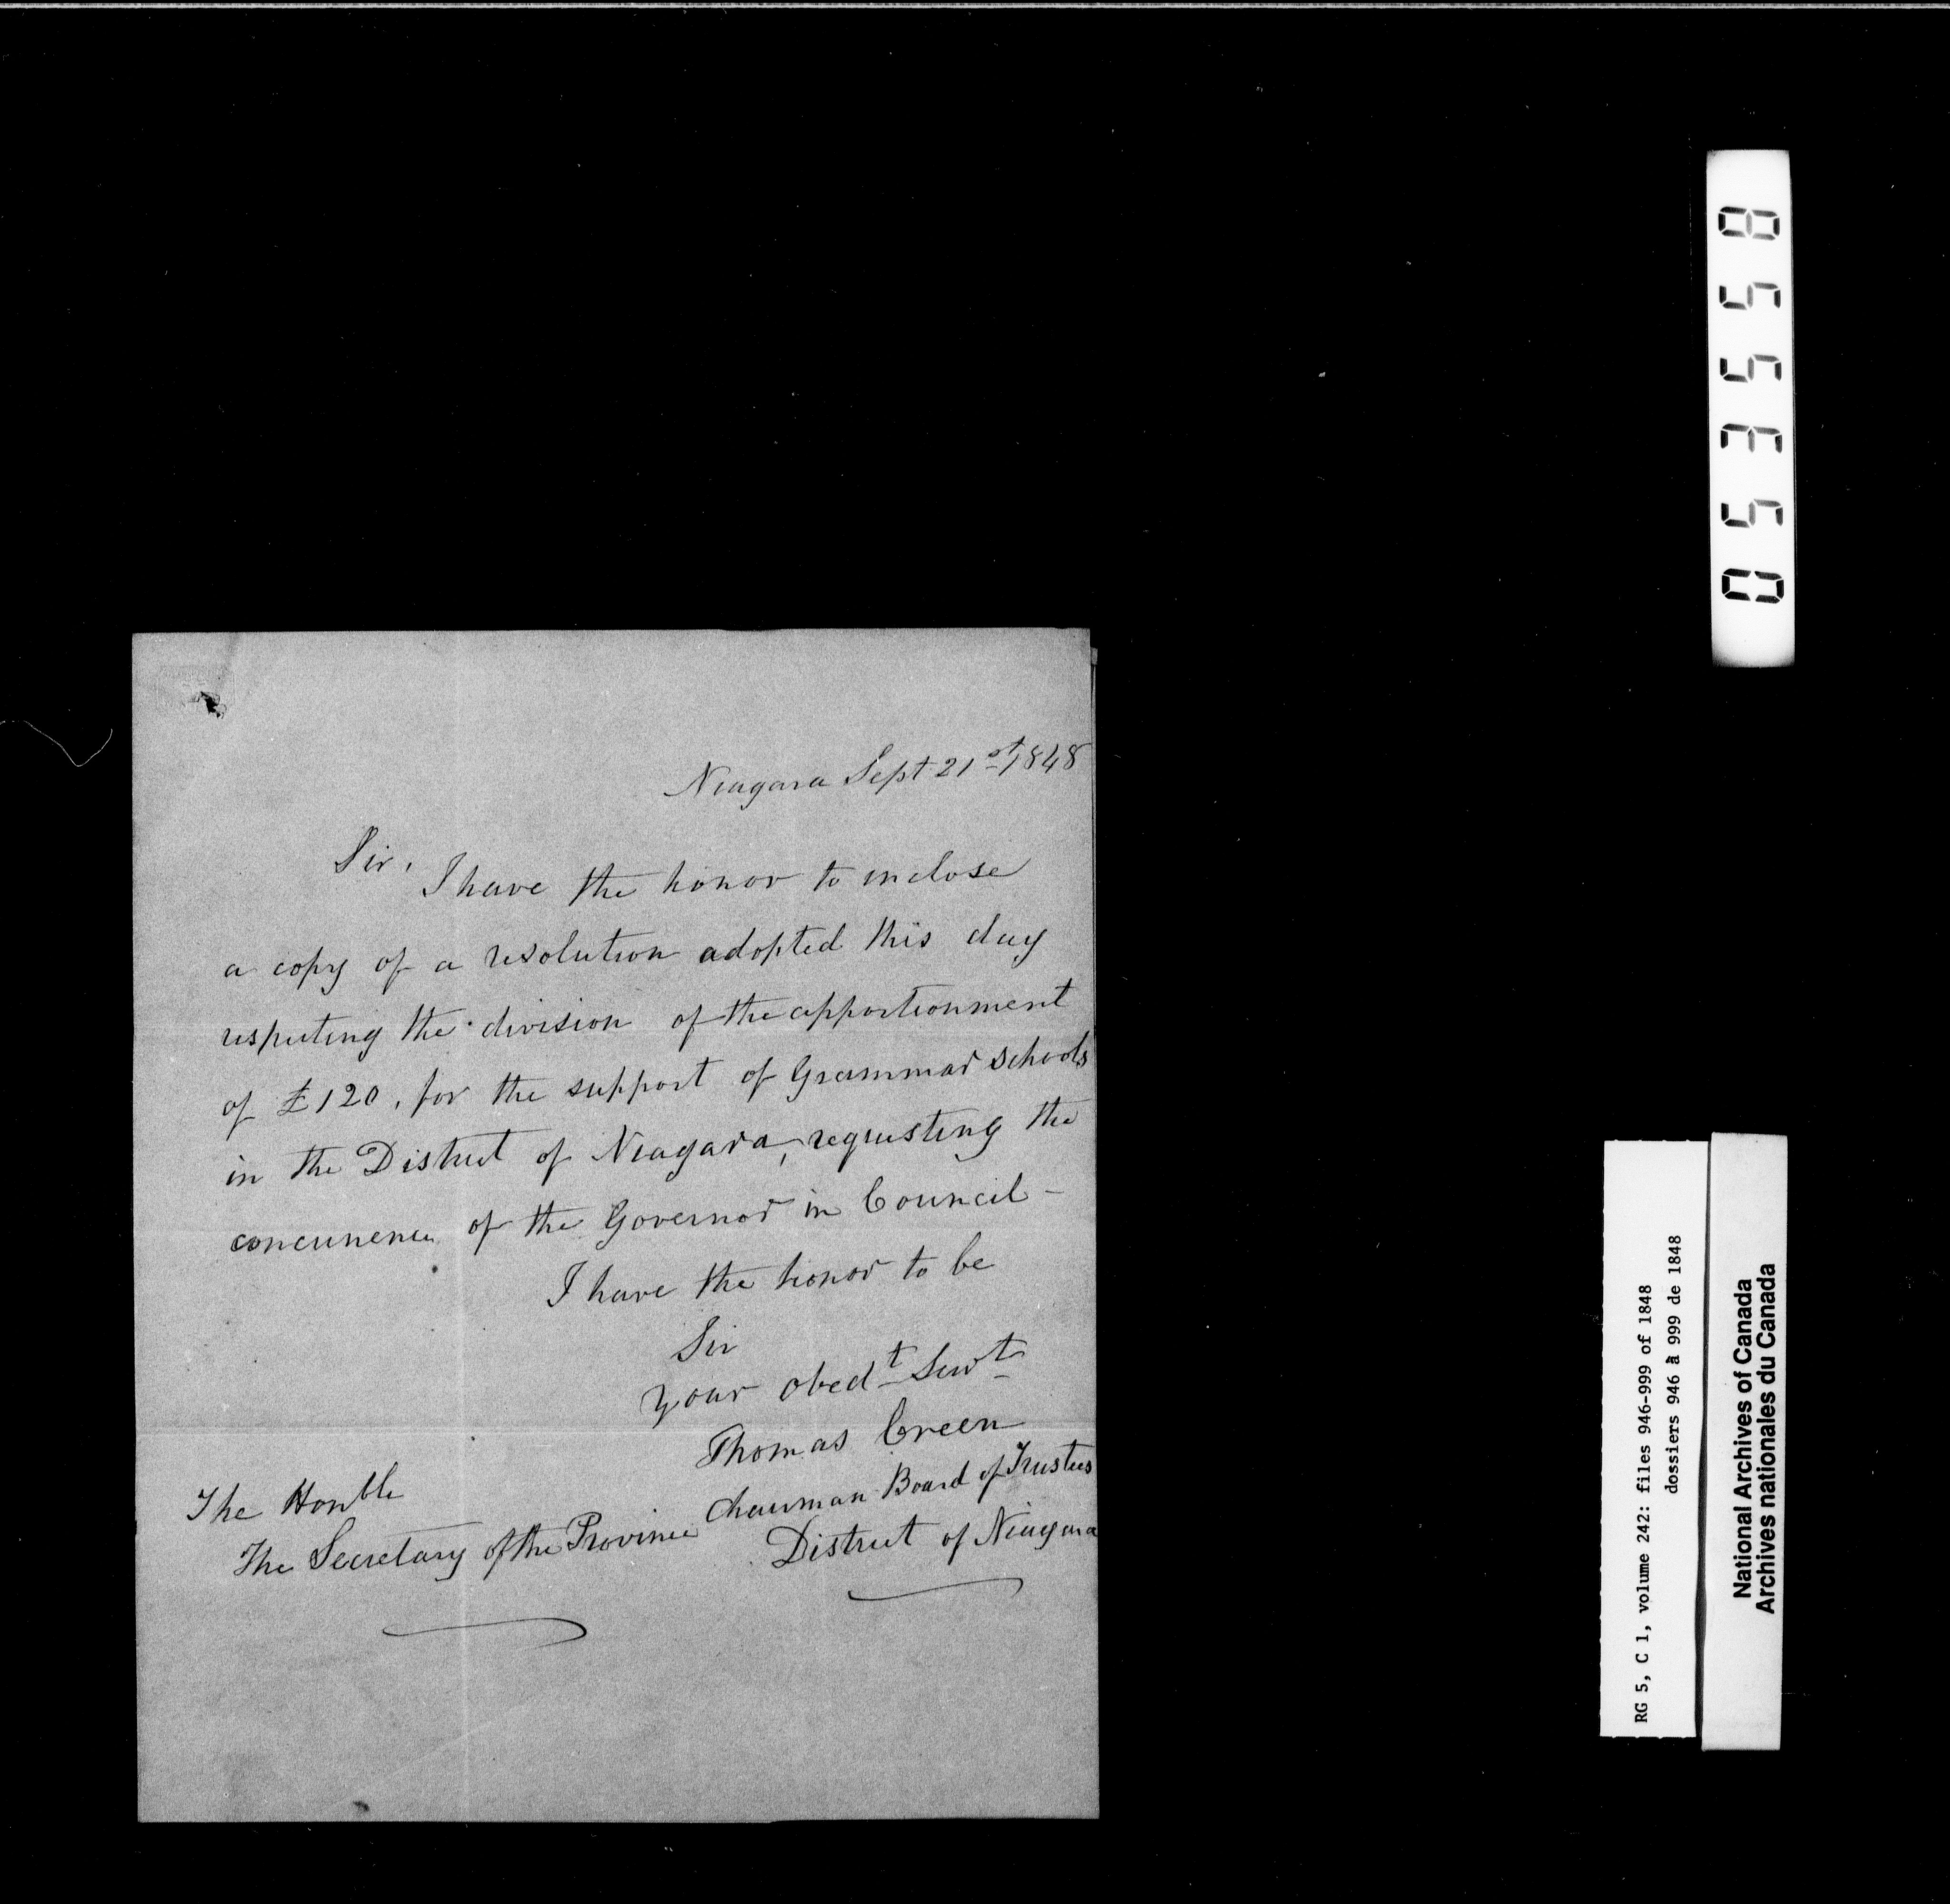 Niagara Sept 21st 1848
Sir,
I have the honor to inclose
a copy of a resolution adopted this day
respecting the division of the apportionment
of £120, for the support of Grammar Schools
in the District of Niagara, requesting the
concurrence of the Governor in Council -
I have the honor to be
Sir
your obedt Servt
Thomas Creen
Chairman Board of Trustees
District of Niagara
The Honble
The Secretary of the Province
053558
RG 5, C 1, volume 242: files 946-999 of 1848
dossiers 946 à 999 de 1848
National Archives of Canada
Archives nationales du Canada